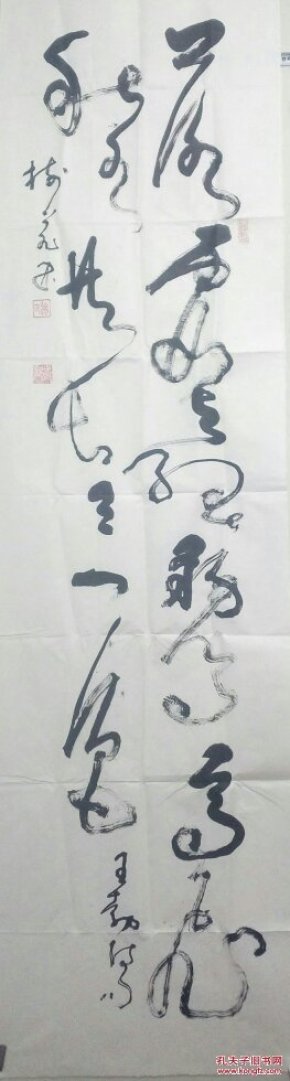 落霞与孤鹜齊飛
秋水共长天一色
王勃诗句
孔夫子旧书网